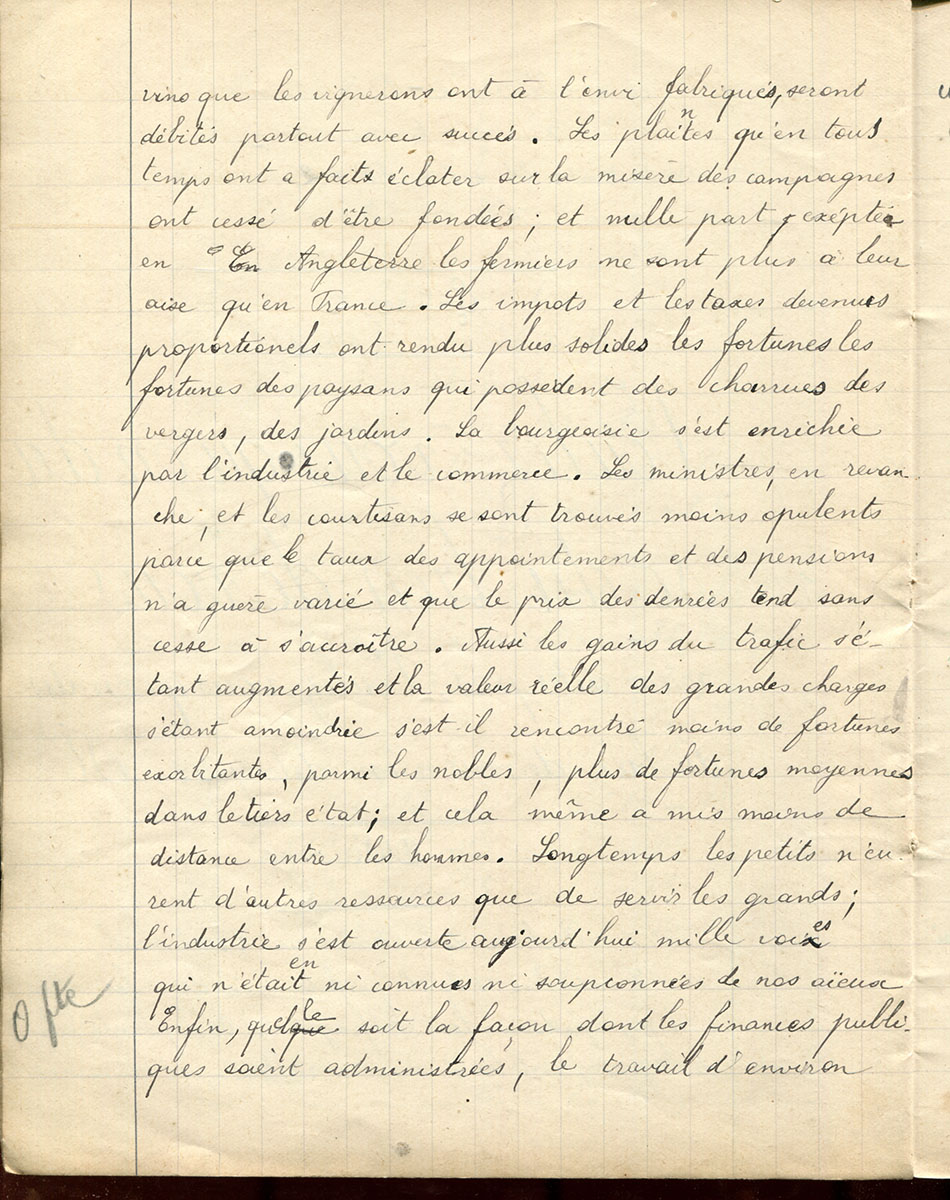 vins que les vignerons ont à l'envi fabriqués, seront
débités partout avec succès. Les plaintes qu'en tous
temps ont a faits éclater sur la misère des campagnes
ont cessé d'être fondées ; et nulle part, exéptée
en Angleterre les fermiers ne sont plus à leur
aise qu'en France. Les impots et les taxes devenues
proportionels ont rendu plus solides les fortunes les
fortunes des paysans qui possèdent des charrues des
vergers, des jardins. La bourgeoisie s'est enrichie
par l'industrie et le commerce. Les ministres, en revan-
che, et les courtisans se sont trouvés moins opulents
parce que le taux des appointements et des pensions
n'a guère varié et que le prix des denrées tend sans
cesse à s'accroître. Aussi les gains du trafic s'é-
tant augmentés et la valeur réelle des grandes charges
s'étant amoindrie s'est-il rencontré moins de fortunes
exorbitantes, parmi les nobles, plus de fortunes moyennes
dans le tiers état ; et cela même a mis moins de
distance entre les hommes. Longtemps les petits n'eu-
rent d'autres ressources que de servir les grands ;
l'industrie s'est ouverte aujourd'hui mille voies
qui n'étaient ni connues ni soupçonnées de nos aïeux
Enfin, quelle soit la façon dont les finances publi-
ques soient administrées, le travail d'environ
0 fte